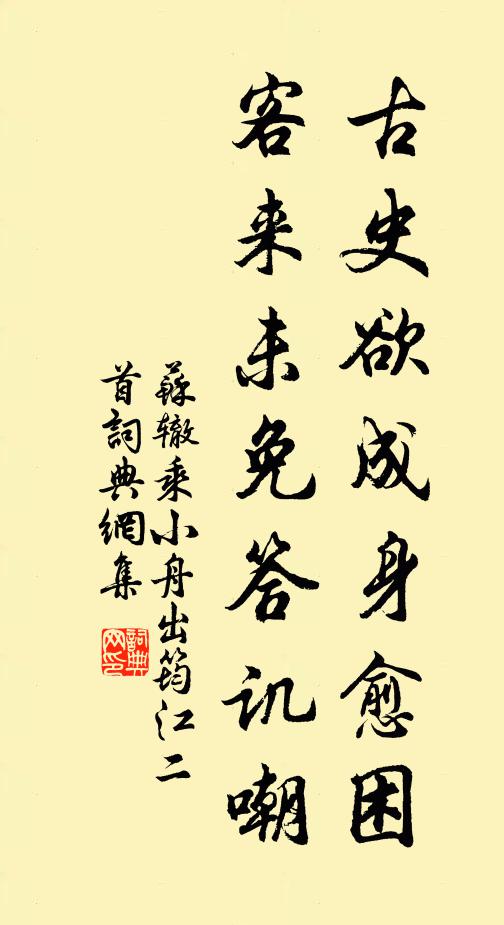 古史欲成身愈困
客来未免答讥嘲
蘇辙乘小舟出筠江二
首詞典網集
詞典网印